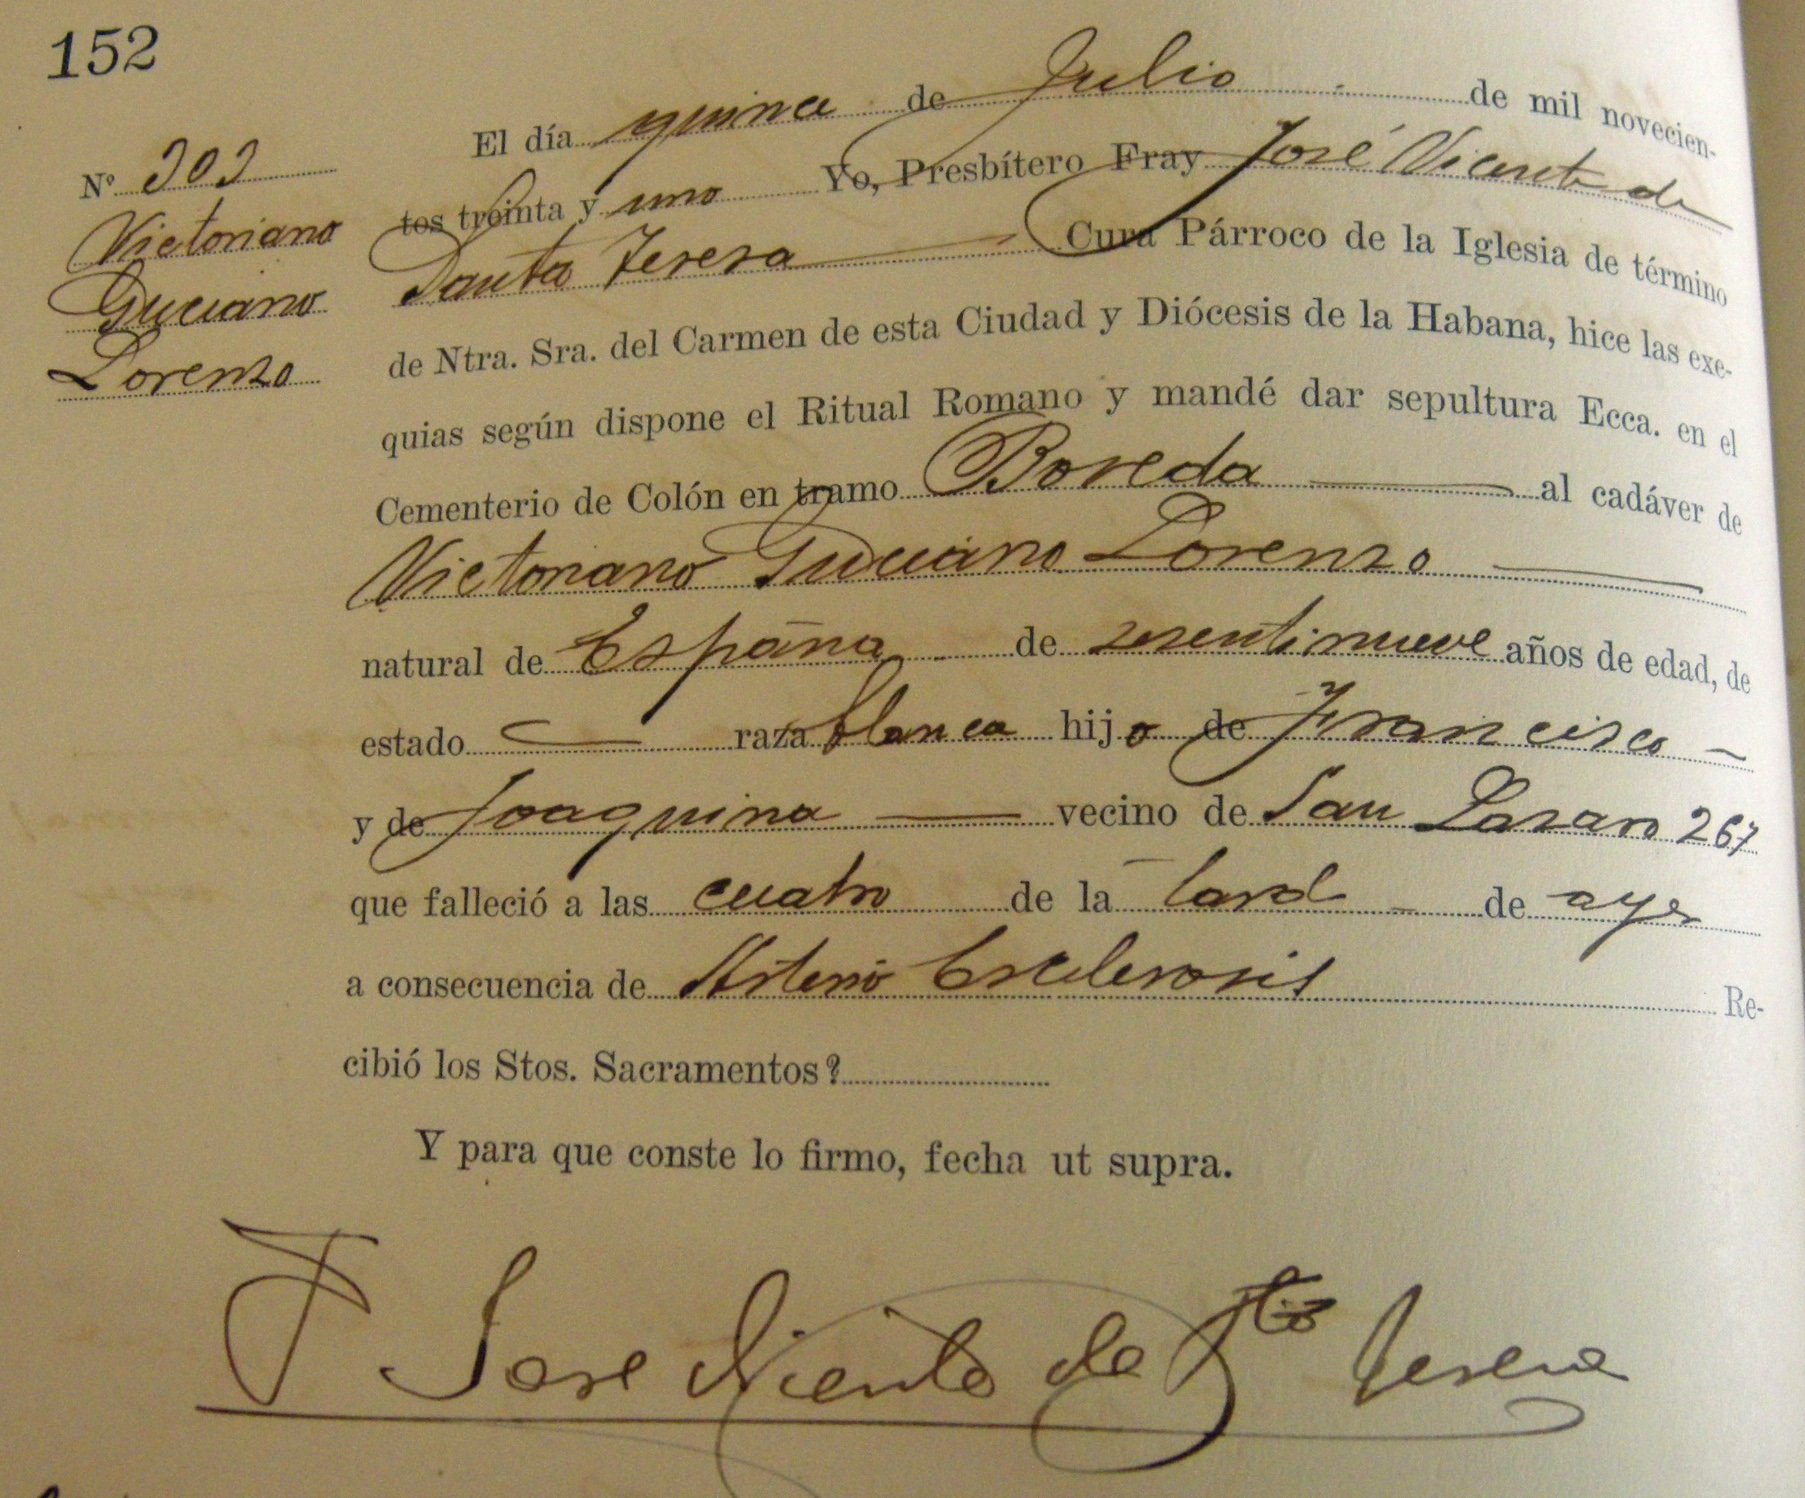 152
Nº 303
Victoriano
Luciano
Lorenzo
El día quince de Julio de mil novecien-
tos treinta y uno Yo, Presbítero Fray José Vicente de
Santa Teresa Cura Párroco de la Iglesia de término
de Ntra. Sra. del Carmen de esta Ciudad y Diócesis de la Habana, hice las exe-
quias según dispone el Ritual Romano y mandé dar sepultura Ecca. en el
Cementerio de Colón en tramo Boveda al cadáver de
Victoriano Luciano Lorenzo
natural de España de sesentinueve años de edad, de
estado raza blanca hijo de Francisco
y de Joaquina vecino de San Lazaro 267
que falleció a las cuatro de la tarde de ayer
a consecuencia de Arterio Esclerosis Re-
cibió los Stos. Sacramentos?
Y para que conste lo firmo, fecha ut supra.
F. Jose Vicente de Sta Teresa